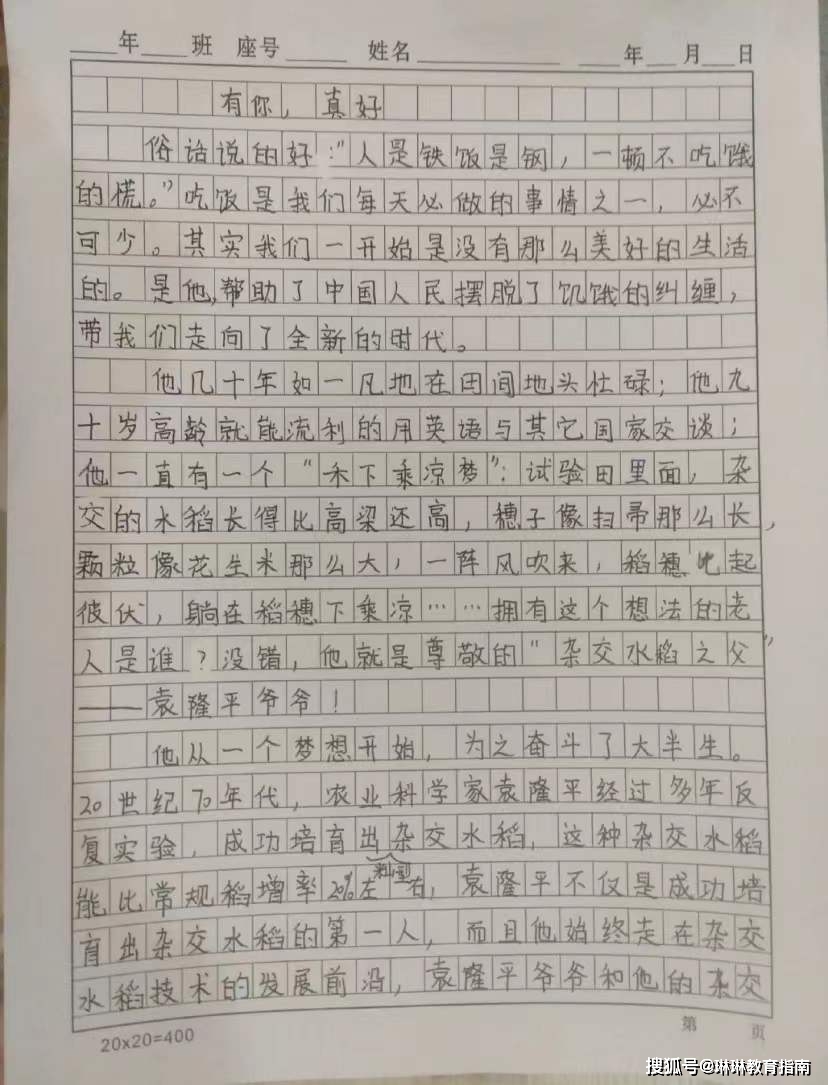 年 班 座号 姓名 年 月 日
有你，真好
俗话说的好："人是铁饭是钢，一顿不吃饿
的慌。"吃饭是我们每天必做的事情之一，必不
可少。其实我们一开始是没有那么美好的生活
的。是他，帮助了中国人民摆脱了饥饿的纠缠，
带我们走向了全新的时代。
他几十年如一凡地在田间地头忙碌；他九
十岁高龄就能流利的用英语与其它国家交谈；
他一直有一个"禾下乘凉梦"：试验田里面，杂
交的水稻长得比高梁还高，穗子像扫帚那么长，
颗粒像花生米那么大，一阵风吹来，稻穗此起
彼伏，躺在稻穗下乘凉……拥有这个想法的老
人是谁？没错，他就是尊敬的"杂交水稻之父"
——袁隆平爷爷！
他从一个梦想开始，为之奋斗了大半生。
20世纪70年代，农业科学家袁隆平经过多年反
复实验，成功培育出籼型杂交水稻，这种杂交水稻
能比常规稻增率20%左右，袁隆平不仅是成功培
育出杂交水稻的第一人，而且他始终走在杂交
水稻技术的发展前沿，袁隆平爷爷和他的杂交
20×20=400
第 页
搜狐号@琳琳教育指南